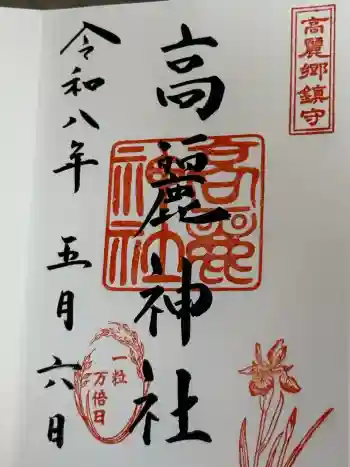 高麗郷鎮守
高麗神社
高麗神社
令和八年 五月 六日
一粒
万倍日